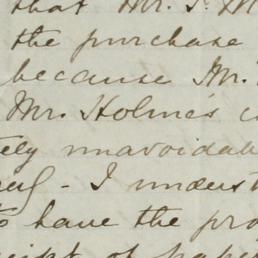 that Mr. S. M
the purchase
because Mr.
Mr. Holmes c
tely unavoidab
I underst
to have the pro
eipt of pape